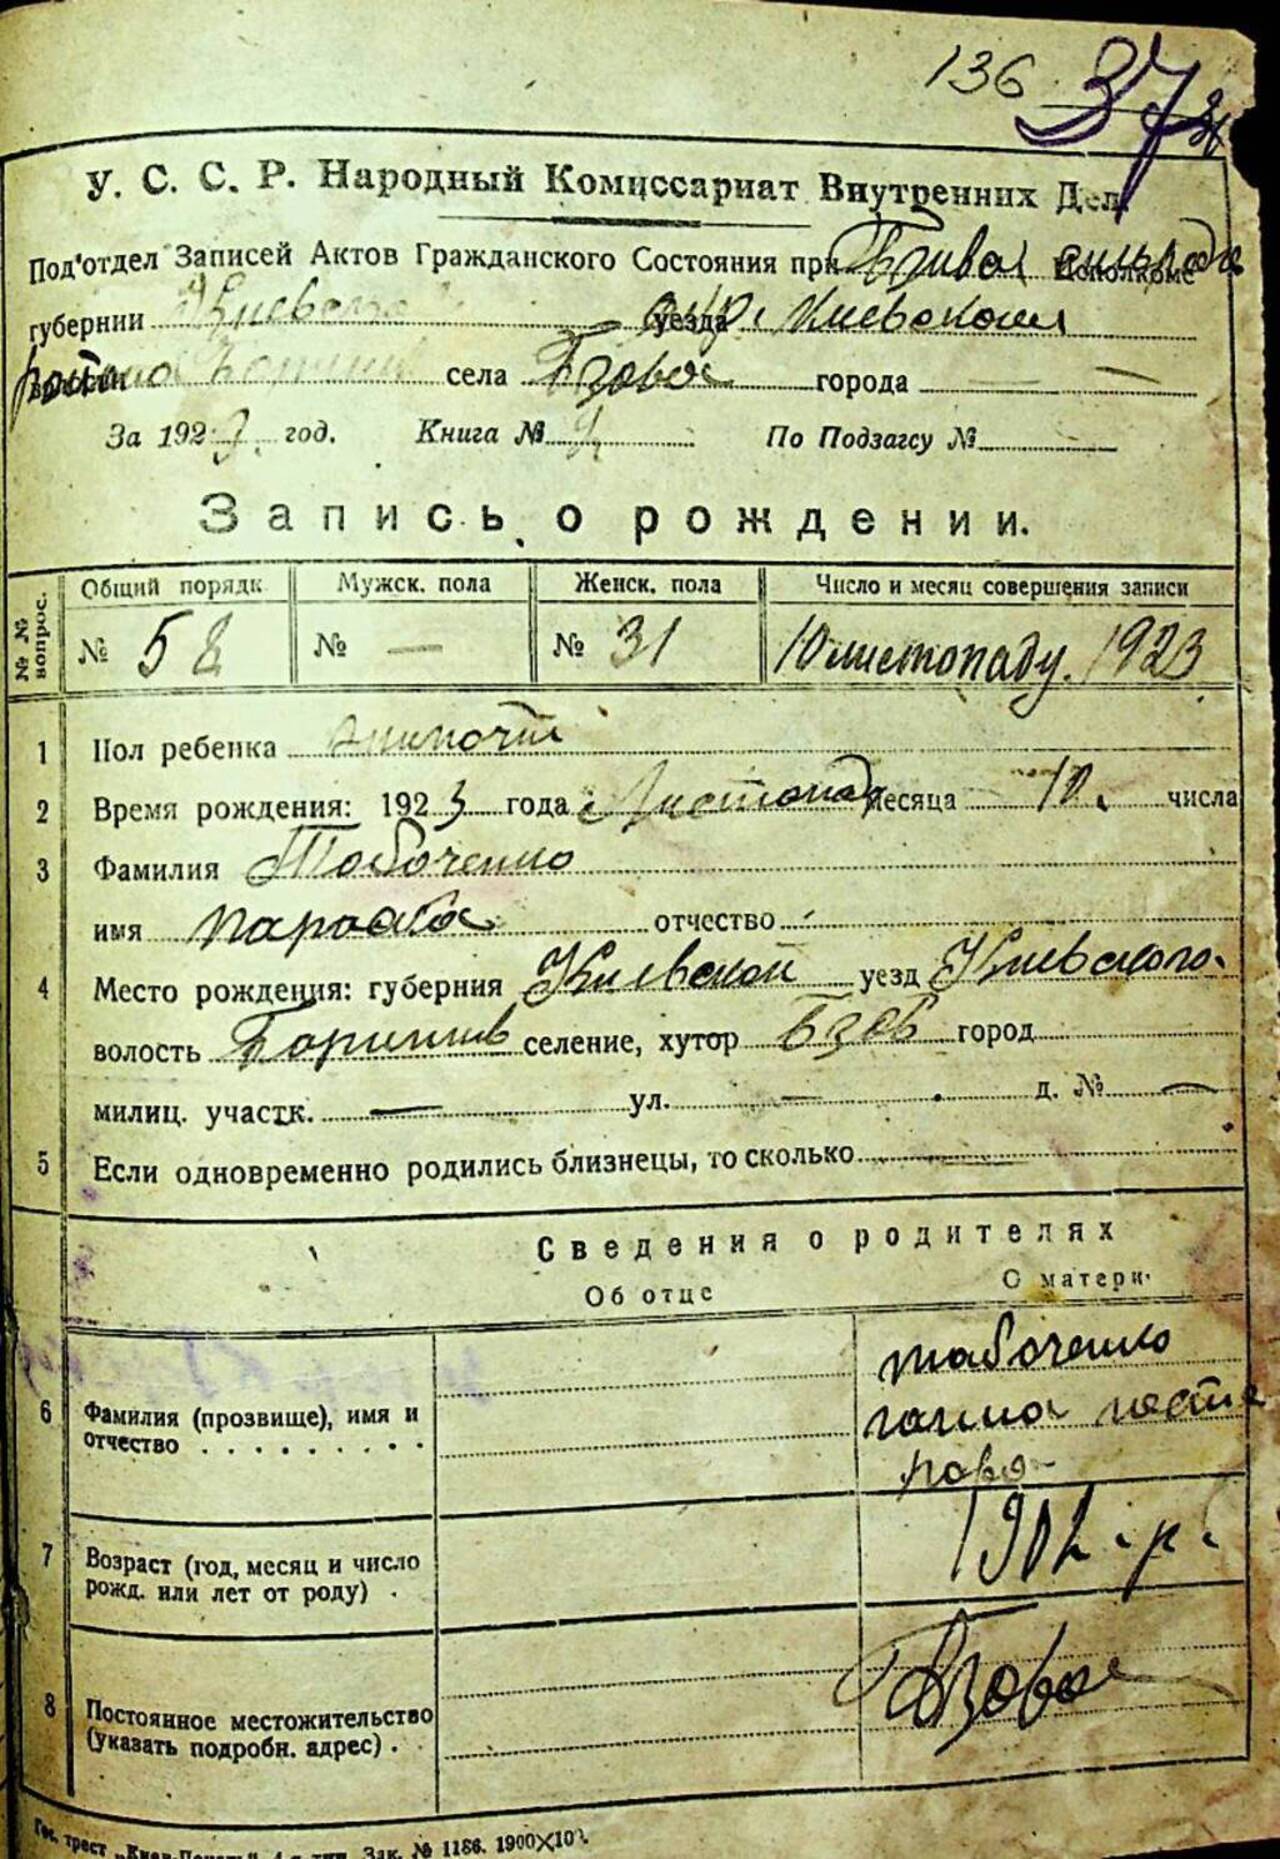 136 37
У. С. С. Р. Народный Комиссариат Внутренних Дел.
Под'отдел Записей Актов Гражданского Состояния при Исполкоме
губернии Киевской уезда окр. Киевской
района села Бзова города —
За 1923 год. Книга № По Подзагсу №
Запись о рождении.
№ № вопрос. Общий порядк Мужск. пола Женск. пола Число и месяц совершения записи
№ 58 № — № 31 10 листопаду. 1923
1 Пол ребенка жиночий
2 Время рождения: 1923 года Листопад месяца 10. числа
3 Фамилия Табоченко
имя Параска отчество
4 Место рождения: губерния Киевской уезд Киевского.
волость селение, хутор Бзов город
милиц. участк. — ул. — д. № —
5 Если одновременно родились близнецы, то сколько —
Сведения о родителях
Об отце О матери
6 Фамилия (прозвище), имя и отчество . . . . . . . . . Табоченко
ганна несте
рова
7 Возраст (год, месяц и число рожд. или лет от роду) . 1902 . р.
8 Постоянное местожительство (указать подробн. адрес) . Бзова
Гос. трест „Киев-Печать“ 4-я тип. Зак. № 1186. 1900×10